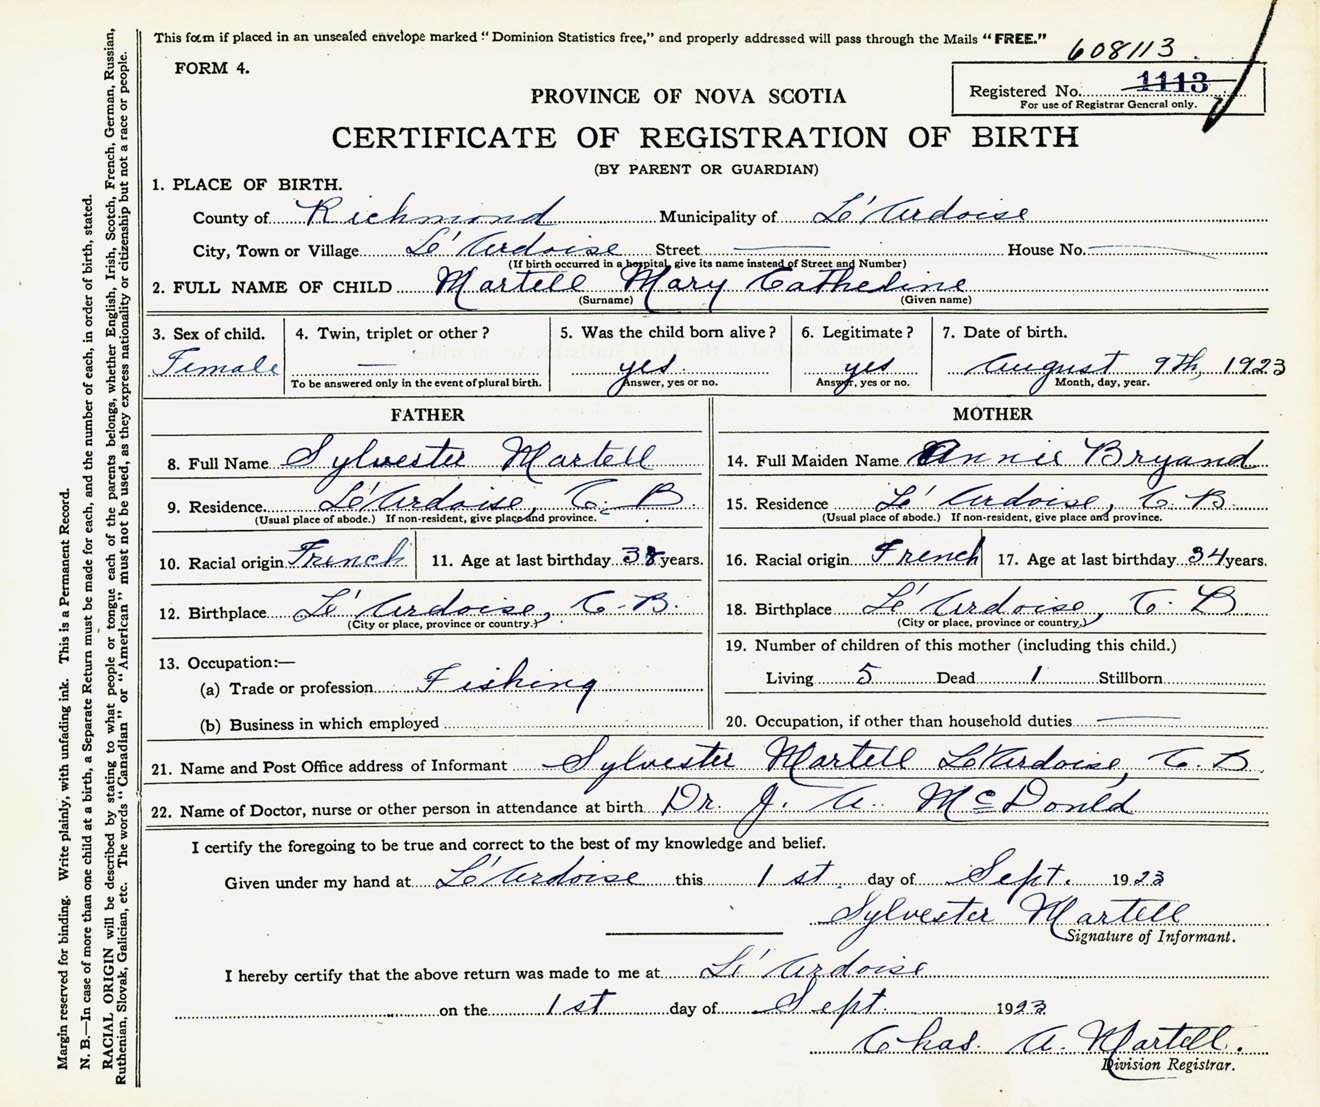 This form if placed in an unsealed envelope marked "Dominion Statistics free," and properly addressed will pass through the Mails "FREE."
608113
FORM 4.
Registered No. 1113
For use of Registrar General only.
PROVINCE OF NOVA SCOTIA
CERTIFICATE OF REGISTRATION OF BIRTH
(BY PARENT OR GUARDIAN)
1. PLACE OF BIRTH.
County of Richmond Municipality of Le' Ardoise
City, Town or Village Le' Ardoise Street — House No. —
(If birth occurred in a hospital, give its name instead of Street and Number)
2. FULL NAME OF CHILD Martell Mary Catherine
(Surname) (Given name)
3. Sex of child. 4. Twin, triplet or other? 5. Was the child born alive? 6. Legitimate? 7. Date of birth.
Female — yes yes August 9th, 1923
To be answered only in the event of plural birth. Answer, yes or no. Answer, yes or no. Month, day, year.
FATHER
8. Full Name Sylvester Martell
9. Residence Le' Ardoise, C. B
(Usual place of abode.) If non-resident, give place and province.
10. Racial origin French 11. Age at last birthday 38 years.
12. Birthplace Le' Ardoise, C. B.
(City or place, province or country.)
13. Occupation:—
(a) Trade or profession Fishing
(b) Business in which employed
MOTHER
14. Full Maiden Name Annie Bryand
15. Residence Le' Ardoise, C. B.
(Usual place of abode.) If non-resident, give place and province.
16. Racial origin French 17. Age at last birthday 34 years.
18. Birthplace Le' Ardoise, C. B
(City or place, province or country.)
19. Number of children of this mother (including this child.)
Living 5 Dead 1 Stillborn
20. Occupation, if other than household duties —
21. Name and Post Office address of Informant Sylvester Martell Le' Ardoise, C. B.
22. Name of Doctor, nurse or other person in attendance at birth Dr. J. A. McDonld
I certify the foregoing to be true and correct to the best of my knowledge and belief.
Given under my hand at Le' Ardoise this 1st day of Sept. 1923
Sylvester Martell
Signature of Informant.
I hereby certify that the above return was made to me at Le' Ardoise
on the 1st day of Sept. 1923
Chas. A. Martell.
Division Registrar.
Margin reserved for binding. Write plainly, with unfading ink. This is a Permanent Record.
N. B.—In case of more than one child at a birth, a Separate Return must be made for each, and the number of each, in order of birth, stated.
RACIAL ORIGIN will be described by stating to what people or tongue each of the parents belongs, whether English, Irish, Scotch, French, German, Russian,
Ruthenian, Slovak, Galician, etc. The words "Canadian" or "American" must not be used, as they express nationality or citizenship but not a race or people.